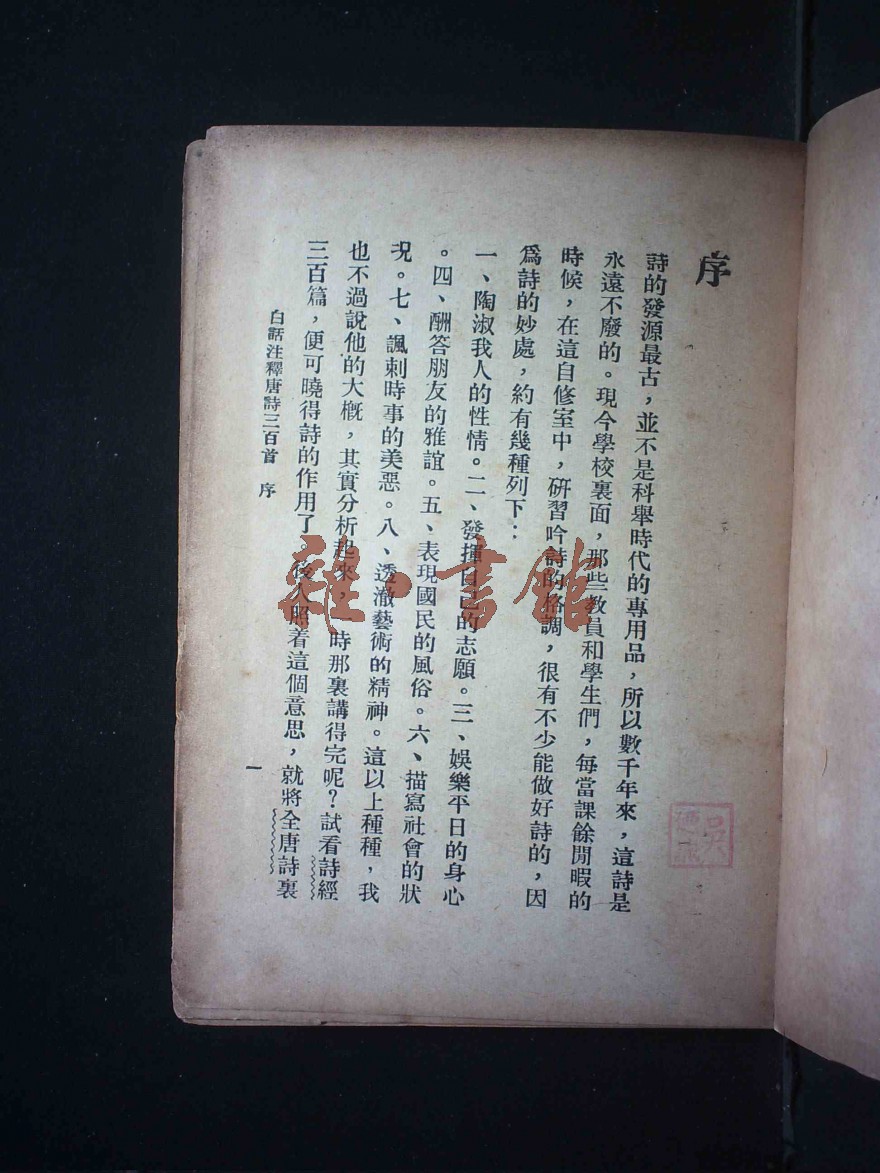 序
詩的發源最古，並不是科舉時代的專用品，所以數千年來，這詩是
永遠不廢的。現今學校裏面，那些教員和學生們，每當課餘閒暇的
時候，在這自修室中，研習吟詩的格調，很有不少能做好詩的，因
爲詩的妙處，約有幾種列下：
一、陶淑我人的性情。二、發揮自己的志願。三、娛樂平日的身心
。四、酬答朋友的雅誼。五、表現國民的風俗。六、描寫社會的狀
况。七、諷刺時事的美惡。八、透澈藝術的精神。這以上種種，我
也不過說他的大概，其實分析起來，時那裏講得完呢？試看詩經
三百篇，便可曉得詩的作用了。後人照着這個意思，就將全唐詩裏
白話注釋唐詩三百首 序
一
雜·書館